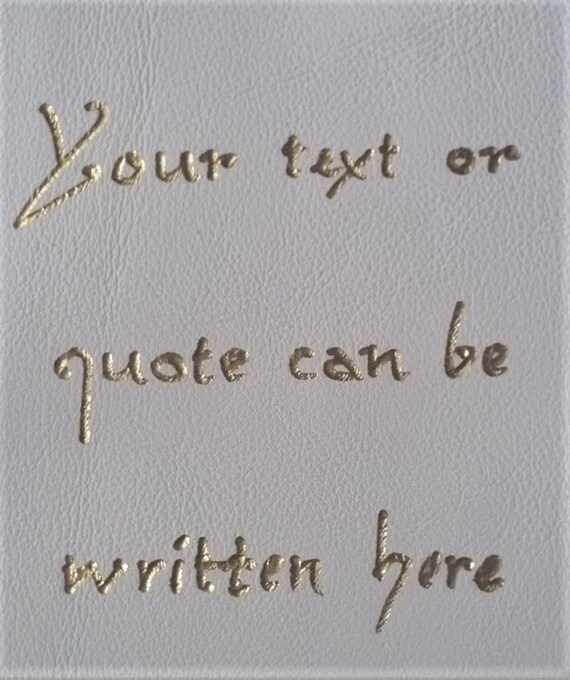 Your text or
quote can be
written here